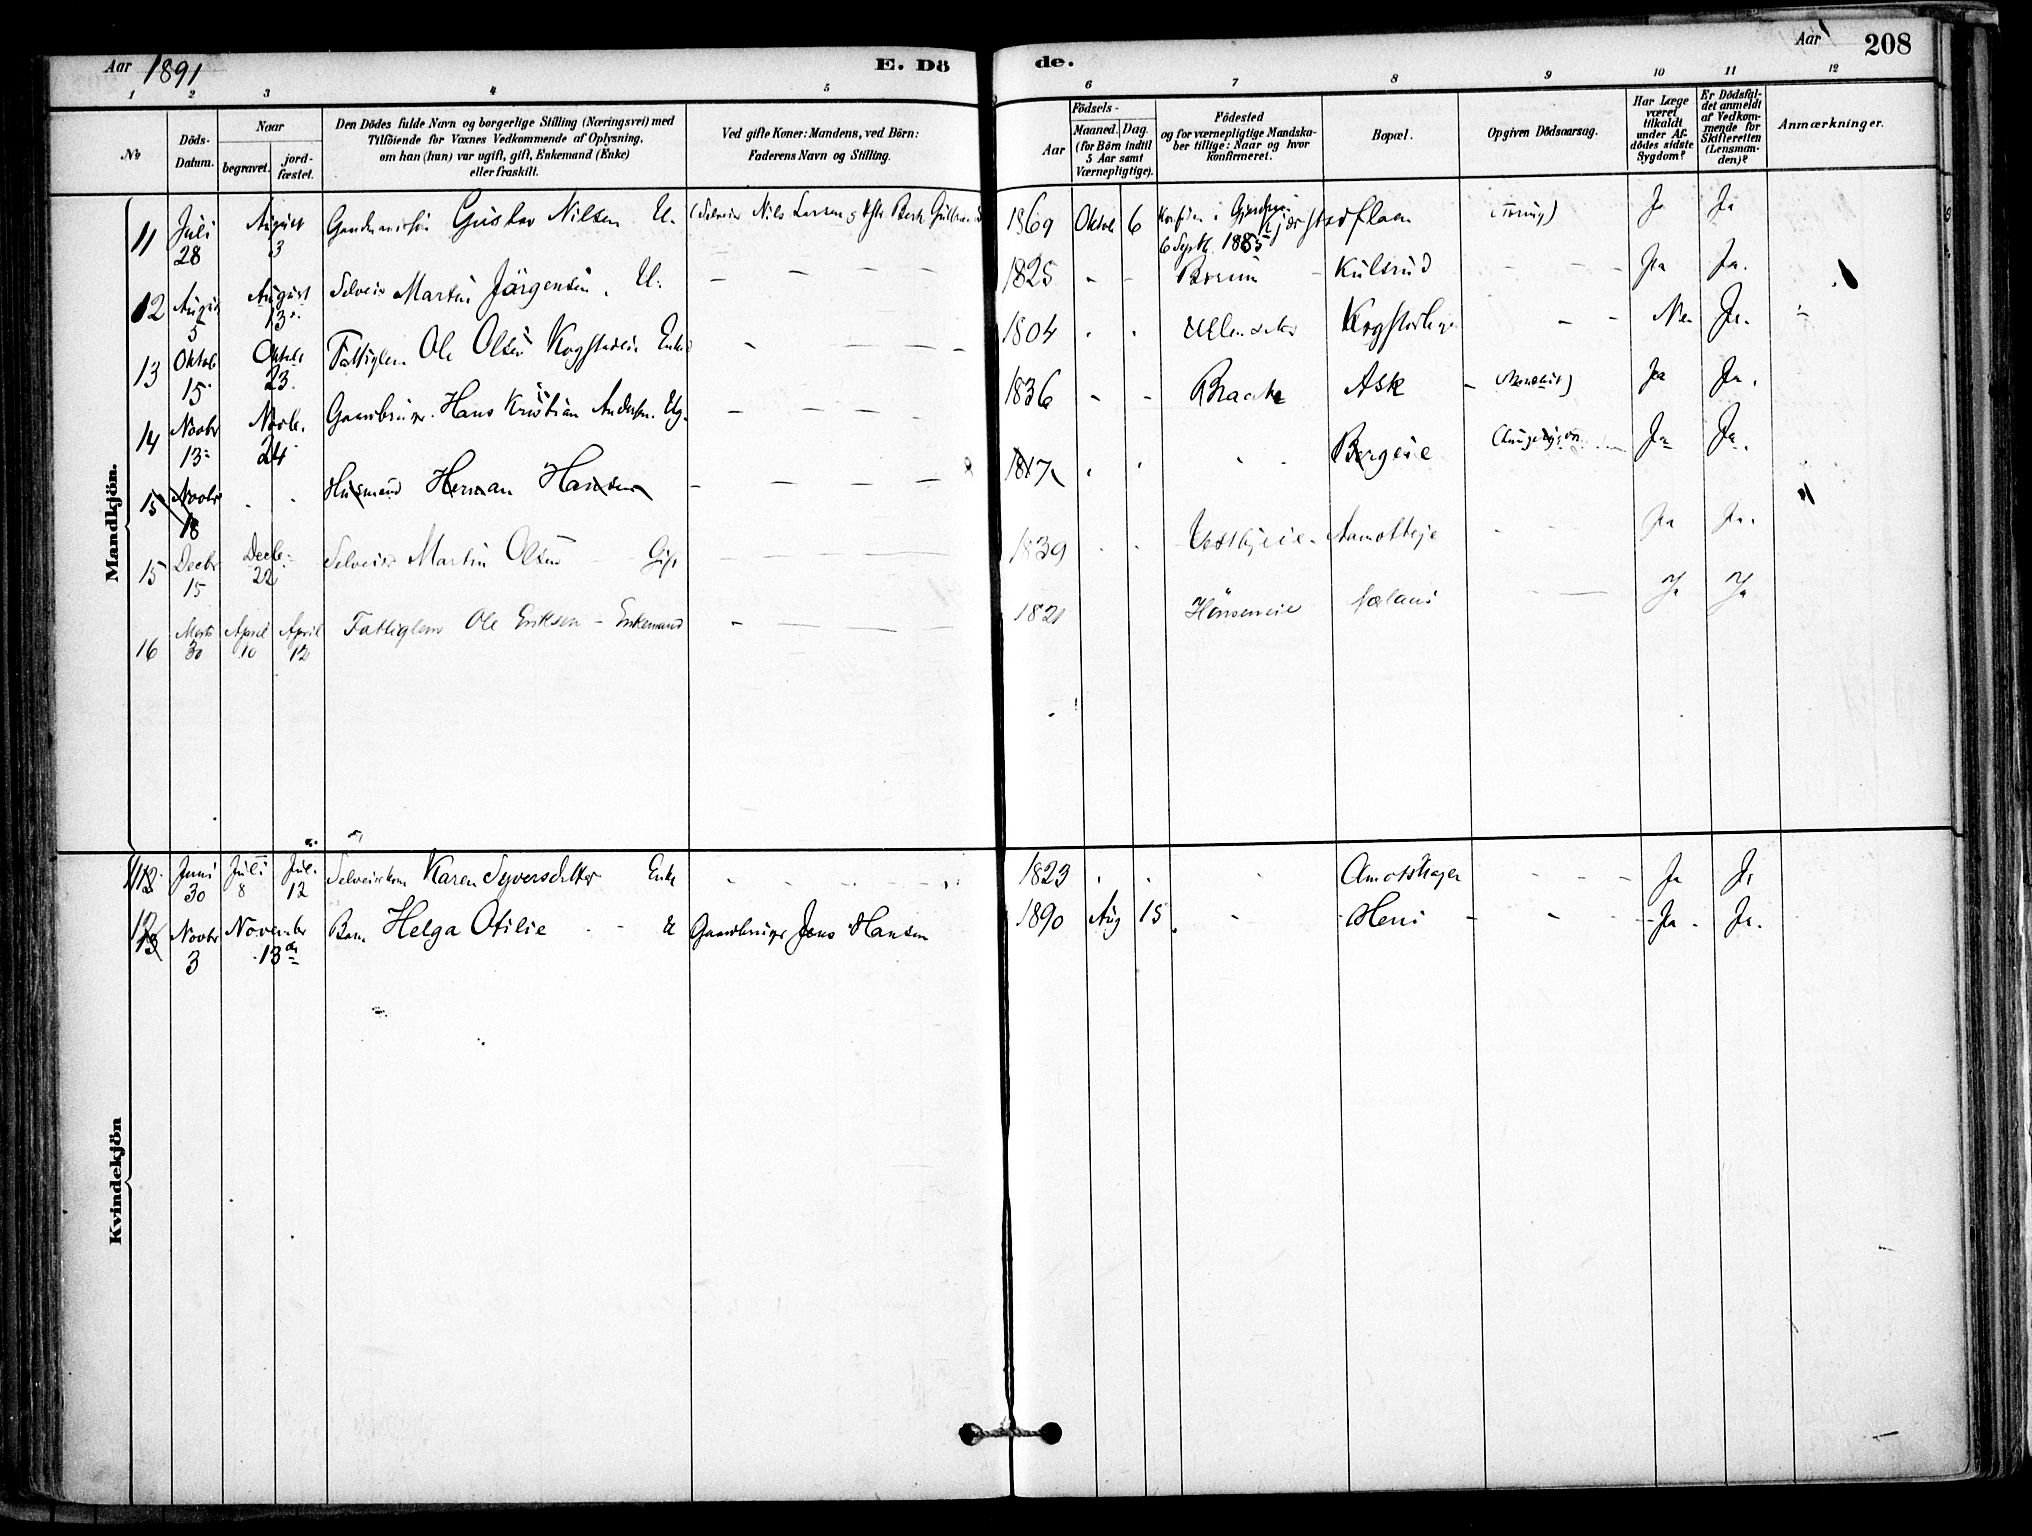 Aar 1891
E. Dö
de.
Aar
208
1 2 3 4 5 6 7 8 9 10 11 12
No
Döds-Datum.
Naar
begravet.
jordfæstet.
Den Dödes fulde Navn og borgerlige Stilling (Næringsvei) med
Tilföiende for Voxnes Vedkommende af Oplysning,
om han (hun) var ugift, gift, Enkemand (Enke)
eller fraskilt.
Ved gifte Koner: Mandens, ved Börn:
Faderens Navn og Stilling.
Födsels-
Aar
Maaned. Dag.
(for Börn indtil
5 Aar samt
Værnepligtige).
Födested
og for værnepligtige Mandskaber tillige: Naar og hvor
konfirmeret.
Bopæl.
Opgiven Dödsaarsag.
Har Læge
været
tilkaldt
under Afdödes sidste
Sygdom?
Er Dödsfaldet anmeldt
af Vedkommende for
Skifteretten
(Lensmanden)?
Anmærkninger.
Mandkjön.
11 Juli 28 August 3 Gustav Nilsen U. Nils Larsen 1869 Oktob 6 6 Septb. 1885 Ja Ja
12 August 5 August 13. Selveier Martin Jörgensen. U. – – – – 1825 - - Kulsrud – – – Ja Ja.
13 Oktob 15. Oktob 23. Fattiglem. Ole Olsen Kogstadeie Enkem 1804 . . – – Nei Ja.
14 Novbr 13 Novbr. 24 Gaardbruger. Hans Kristian Andersen. Ug. – – – – 1836 - - Braate Ask Ja Ja.
15 Novbr 18 . . Husmand Herman Hansen – – – – 1817 . . Bergeie Ja Ja.
15 Decbr 15 Decbr. 22 Selveier Martin Olsen – Gift 1839 . . Vestbyeie. Aamotteje Ja Ja.
16 Marts 30 April 10 April 12 Fattiglem Ole Eriksen – Enkemand – 1821 Hönseneie Ja Ja
Kvindekjön
12 Juni 30 Juli 8 Juli 12 Karen Syversdatter Enke 1823 . . Amotshagen Ja Ja
12 13 Novbr 3 November 13de Barn Helga Otilie U Gaardbruger Jens Hansen 1890 Aug 15. – Heni – – – Ja. Ja.